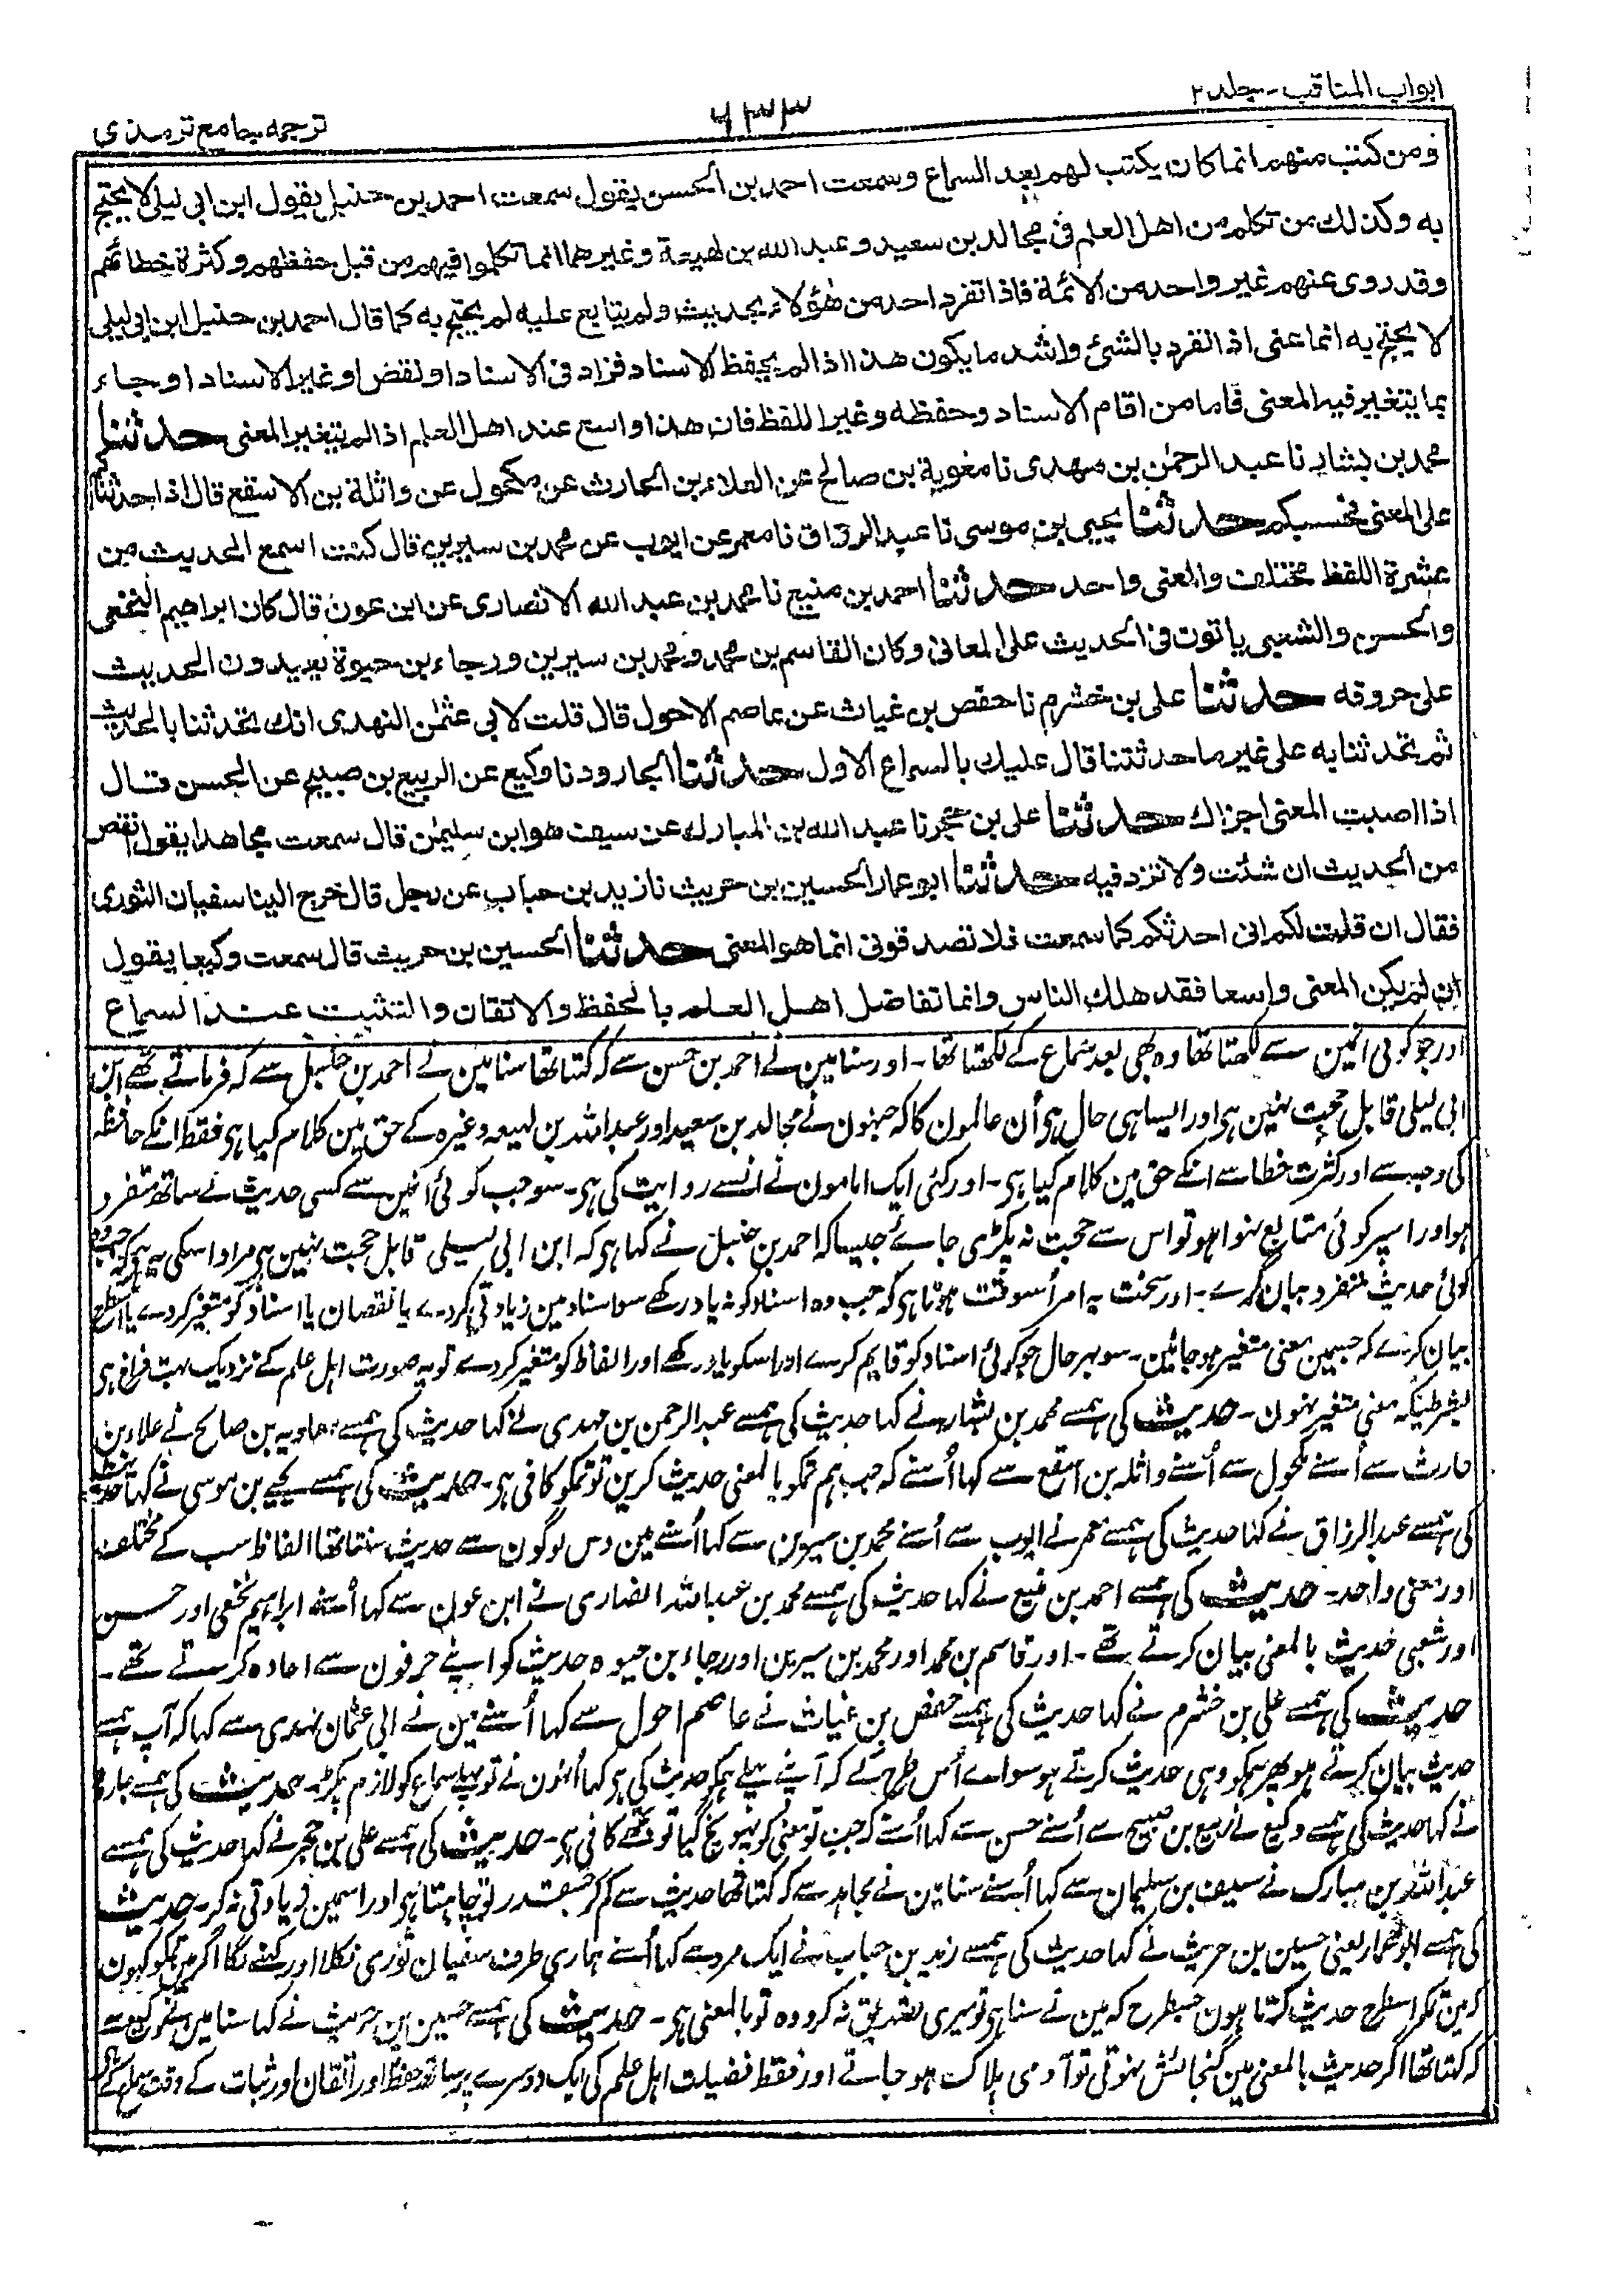 ابواب المناقب - جلد ۲
۶۳۳
ترجمہ جامع ترمذی
ومن كتب منهم انما كان يكتب لهم بعد السماع وسمعت احمد بن الحسن يقول سمعت احمد بن حنبل يقول ابن ابى ليلى لا يحتج
به وكذلك من تكلم من اهل العلم فى مجالد بن سعيد وعبد الله بن لهيعة وغيرهما انما تكلموا فيهم من قبل حفظهم وكثرة خطائهم
وقد روى عنهم غير واحد من الائمة فاذا تفرد احد من هؤلاء بحديث ولم يتابع عليه لم يحتج به كما قال احمد بن حنبل ابن ابى ليلى
لا يحتج به انما عنى اذا تفرد بالشئ واشد ما يكون هذا اذا لم يحفظ الاسناد فزاد فى الاسناد او نقص او غير الاسناد او جاء
بما يتغير فيه المعنى فاما من اقام الاسناد وحفظه وغير اللفظ فان هذا واسع عند اهل العلم اذا لم يتغير المعنى حدثنا
محمد بن بشار نا عبد الرحمن بن مهدى نا معوية بن صالح عن العلاء بن الحارث عن مكحول عن واثلة بن الاسقع قال اذا حدثناكم
على المعنى فحسبكم حدثنا يحيى بن موسى نا عبد الرزاق نا معمر عن ايوب عن محمد بن سيرين قال كنت اسمع الحديث من
عشرة اللفظ مختلف والمعنى واحد حدثنا احمد بن منيع نا محمد بن عبد الله الانصارى عن ابن عون قال كان ابراهيم النخعى
والحسن والشعبى ياتون فى الحديث على المعانى وكان القاسم بن محمد ومحمد بن سيرين ورجاء بن حيوة يعيدون الحديث
على حروفه حدثنا على بن خشرم نا حفص بن غياث عن عاصم الاحول قال قلت لابى عثمن النهدى انك تحدثنا بالحديث
ثم تحدثنا به على غير ما حدثتنا قال عليك بالسماع الاول حدثنا الجارود نا وكيع عن الربيع بن صبيح عن الحسن قال
اذا اصبت المعنى اجزاك حدثنا على بن حجر نا عبد الله بن المبارك عن سيف هو ابن سليمن قال سمعت مجاهدا يقول انقص
من الحديث ان شئت ولا تزد فيه حدثنا ابو عمار الحسين بن حريث نا زيد بن حباب عن رجل قال خرج الينا سفيان الثورى
فقال ان قلت لكم انى احدثكم كما سمعت فلا تصدقونى انما هو المعنى حدثنا الحسين بن حريث قال سمعت وكيعا يقول
ان لم يكن المعنى واسعا فقد هلك الناس وانما تفاضل اهل العلم بالحفظ والاتقان والتثبت عند السماع
اور جو کوئی انمین سے لکھتا تھا وہ بھی بعد سماع کے لکھتا تھا۔ اور سنا مین نے احمد بن حسن سے کہ کہتا تھا سنا مین نے احمد بن حنبل سے کہ فرماتے تھے ابن
ابی لیلی قابل حجت نہین ہی اور ایسا ہی حال ہی اُن عالمون کا کہ جنہون نے مجالد بن سعید اور عبداللہ بن لہیعہ وغیرہ کے حق مین کلام کیا ہی فقط انکے حافظہ
کی وجہ سے اور کثرت خطا سے انکے حق مین کلام کیا ہی۔ اور کئی ایک امامون نے انسے روایت کی ہی۔ سو جب کوئی انمین سے کسی حدیث کے ساتھ متفرد
ہو اور اسپر کوئی متابع نہوا ہو تو اس سے حجت نہ پکڑی جائے جیسا کہ احمد بن حنبل نے کہا ہی کہ ابن ابی لیلی قابل حجت نہین ہی مراد اسکی یہ ہی کہ جب وہ
کوئی حدیث منفرد بیان کرے۔ اور سخت یہ امر اُسوقت ہوتا ہی کہ جب وہ اسناد کو نہ یاد رکھے سو اسناد مین زیادتی کردے یا نقصان یا اسناد کو متغیر کردے یا اسطرح
بیان کرے کہ جسمین معنی متغیر ہو جائین۔ سو بہر حال جو کوئی اسناد کو قایم کرے اور اسکو یاد رکھے اور الفاظ کو متغیر کردے تو یہ صورت اہل علم کے نزدیک بہت فراخ ہی
بشرطیکہ معنی متغیر نہون۔ حدیث کی ہمسے محمد بن بشار نے کہا حدیث کی ہمسے عبدالرحمن بن مہدی نے کہا حدیث کی ہمسے معاویہ بن صالح نے علاء بن
حارث سے اُسنے مکحول سے اُسنے واثلہ بن اسقع سے کہا اُسنے کہ جب ہم تمکو بالمعنی حدیث کرین تو تمکو کافی ہی۔ حدیث کی ہمسے یحیے بن موسی نے کہا حدیث
کی ہمسے عبدالرزاق نے کہا حدیث کی ہمسے معمر نے ایوب سے اُسنے محمد بن سیرین سے کہا اُسنے مین دس لوگون سے حدیث سنتا تھا الفاظ سب کے مختلف
اور معنی واحد۔ حدیث کی ہمسے احمد بن منیع نے کہا حدیث کی ہمسے محمد بن عبداللہ انصاری نے ابن عون سے کہا اُسنے ابراہیم نخعی اور حسن
اور شعبی حدیث بالمعنی بیان کرتے تھے۔ اور قاسم بن محمد اور محمد بن سیرین اور رجاء بن حیوہ حدیث کو اپنے حرفون سے اعادہ کرتے تھے۔
حدیث کی ہمسے علی بن خشرم نے کہا حدیث کی ہمسے حفص بن غیاث نے عاصم احول سے کہا اُسنے مین نے ابی عثمان نہدی سے کہا کہ آپ ہمسے
حدیث بیان کرتے ہو پھر ہمکو وہی حدیث کرتے ہو سواے اُس طرح کے کہ آپنے پہلے ہمکو حدیث کی ہی کہا اُنہون نے تو پہلے سماع کو لازم پکڑ۔ حدیث کی ہمسے جارود
نے کہا حدیث کی ہمسے وکیع نے ربیع بن صبیح سے اُسنے حسن سے کہا اُسنے کہ جب تو معنی کو پہونچ گیا تو تجھے کافی ہی۔ حدیث کی ہمسے علی بن حجر نے کہا حدیث کی ہمسے
عبداللہ بن مبارک نے سیف بن سلیمان سے کہا اُسنے سنا مین نے مجاہد سے کہ کہتا تھا حدیث سے کم کر جسقدر تو چاہتا ہی اور اسمین زیادتی نہ کر۔ حدیث
کی ہمسے ابو عمار یعنی حسین بن حریث نے کہا حدیث کی ہمسے زید بن حباب نے ایک مرد سے کہا اُسنے ہماری طرف سفیان ثوری نکلا اور کہنے لگا اگر مین تمکو کہون
کہ مین تمکو اسطرح حدیث کرتا ہون جسطرح کہ مین نے سنا ہی تو میری تصدیق نہ کرو وہ تو بالمعنی ہی۔ حدیث کی ہمسے حسین بن حریث نے کہا سنا مین نے وکیع سے
کہ کہتا تھا اگر حدیث بالمعنی مین گنجائش نہوتی تو آدمی ہلاک ہو جاتے اور فقط فضیلت اہل علم کی ایک دوسرے پر ساتھ حفظ اور اتقان اور ثبات کے وقت سماع کے